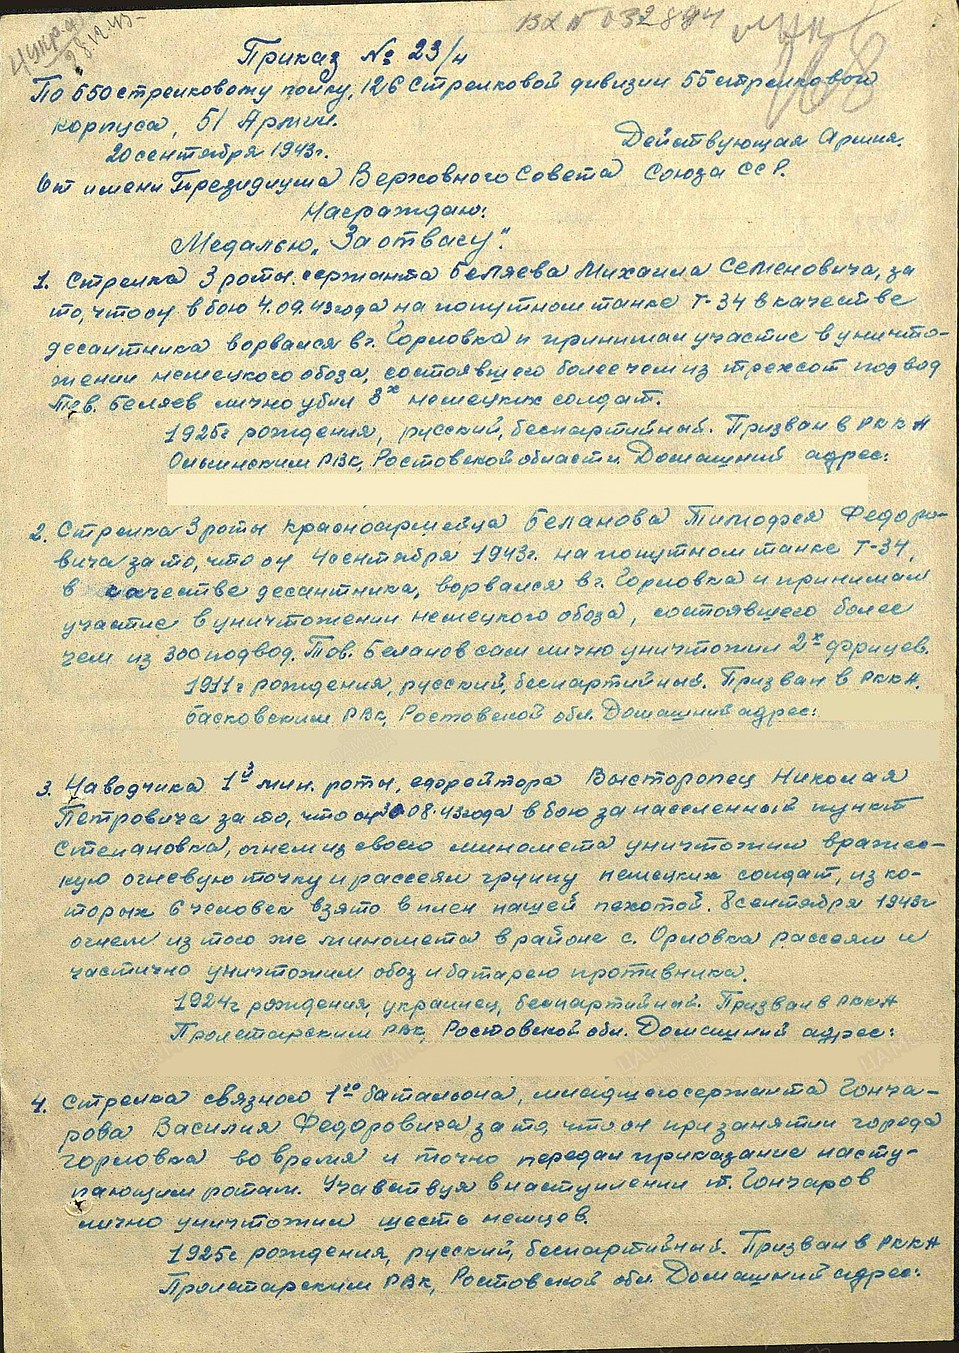 4 Укр.ф
28.12.43
ВХ N 032894
168
Приказ № 23/н
По 550 стрелковому полку, 126 Стрелковой дивизии 55 стрелковой
корпуса, 51 Армии.
20 сентября 1943г. Действующая Армия.
От имени Президиума Верховного Совета Союза ССР.
Награждаю:
Медалью „За отвагу".
1. Стрелка 3 роты сержанта Беляева Михаила Семеновича, за
то, что он в бою 4.09.43 года на попутном танке Т-34 в качестве
десантника ворвался в г. Горловка и принимал участие в уничто-
жении немецкого обоза, состоявшего более чем из трехсот подвод
Тов. Беляев лично убил 3х немецких солдат.
1925г рождения, русский, беспартийный. Призван в РККА
Ольгинским РВК, Ростовской области. Домашний адрес:
2. Стрелка 3 роты красноармейца Беланова Тимофея Федоро-
вича за то, что он 4 сентября 1943г. на попутном танке Т-34,
в качестве десантника, ворвался в г. Горловка и принимал
участие в уничтожении немецкого обоза, состоявшего более
чем из 300 подвод. Тов. Беланов сам лично уничтожил 2х фрицев.
1911г рождения, русский, беспартийный. Призван в РККА,
Басковским РВК, Ростовской обл. Домашний адрес:
3. Наводчика 1й мин. роты, ефрейтора Высторопец Николая
Петровича за то, что он 30.08.43 года в бою за населенный пункт
Степановка, огнем из своего миномета уничтожил вражес-
кую огневую точку и рассеял группу немецких солдат, из ко-
торых 6 человек взято в плен нашей пехотой. 8 сентября 1943г
огнем из того же миномета в районе с. Орловка рассеял и
частично уничтожил обоз и батарею противника.
1924г рождения, украинец, беспартийный. Призван в РККА
Пролетарским РВК, Ростовской обл. Домашний адрес:
4. Стрелка связного 1го батальона, младшего сержанта Гонча-
рова Василия Федоровича за то, что он при занятии города
Горловка во время и точно передал приказание насту-
пающим ротам. Учавствуя в наступлении т. Гончаров
лично уничтожил шесть немцев.
1925г рождения, русский, беспартийный. Призван в РККА
Пролетарским РВК, Ростовской обл. Домашний адрес: